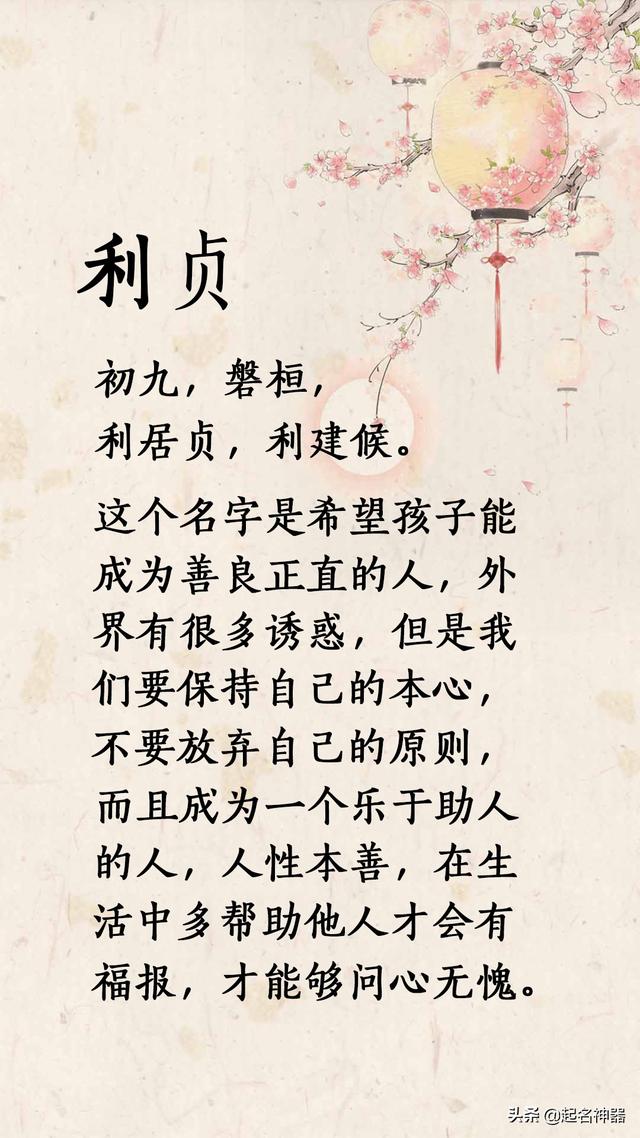 利贞
初九，磐桓，
利居贞，利建候。
这个名字是希望孩子能
成为善良正直的人，外
界有很多诱惑，但是我
们要保持自己的本心，
不要放弃自己的原则，
而且成为一个乐于助人
的人，人性本善，在生
活中多帮助他人才会有
福报，才能够问心无愧。
头条 @起名神器